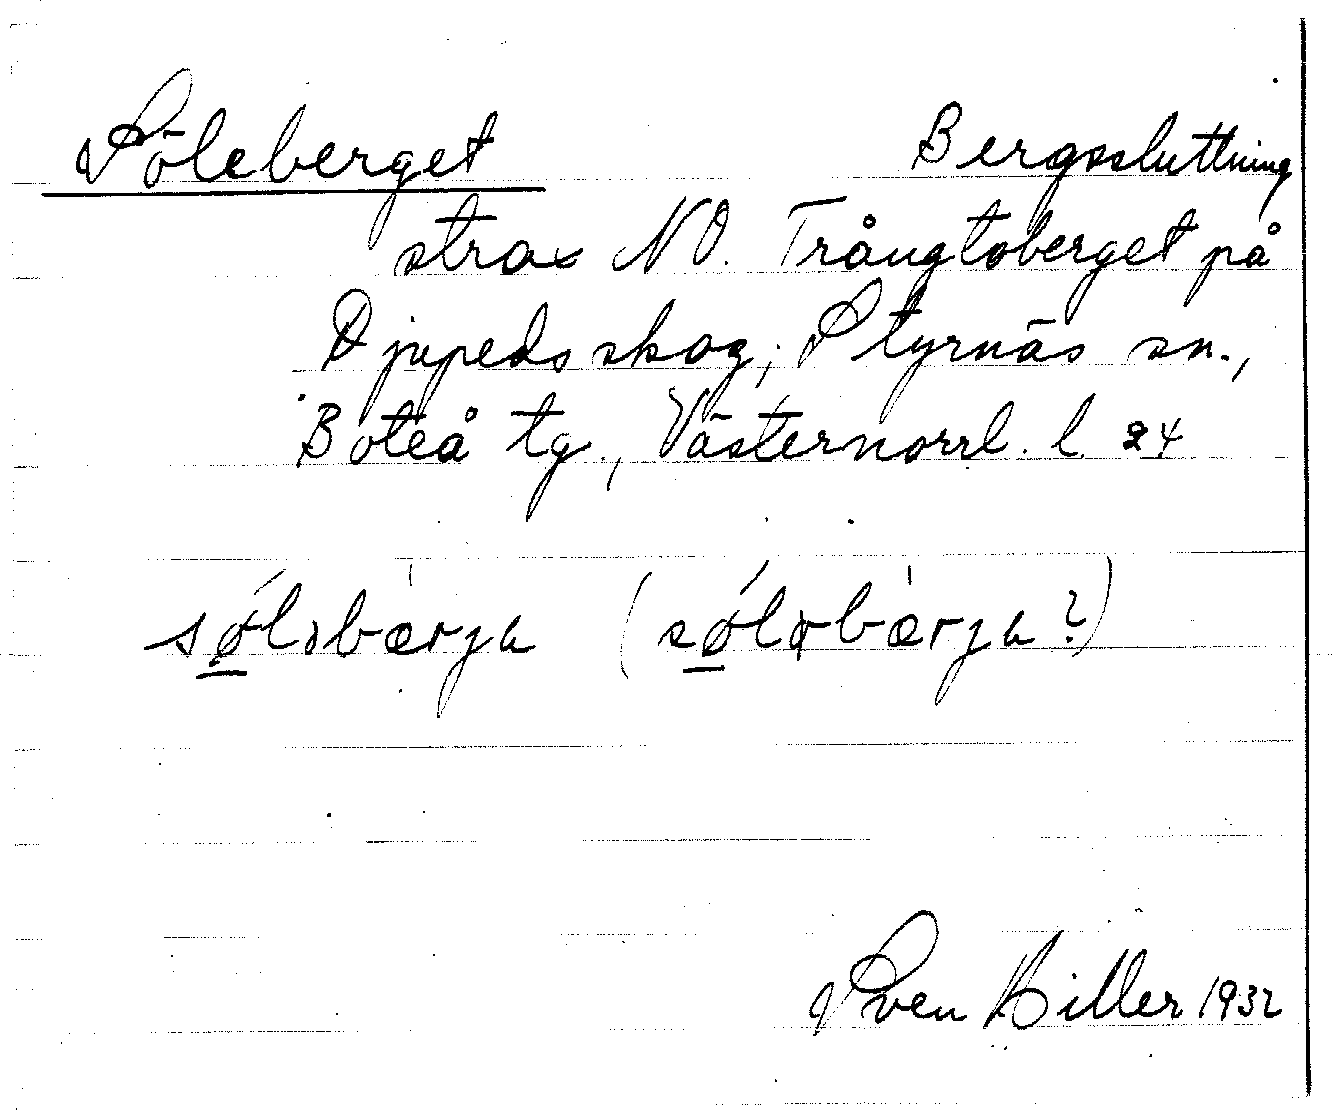 Söleberget Bergssluttning
strax NO. Trångtoberget på
Djupedsskog, Styrnäs sn.,
Boteå tg., Västernorrl. l. 24
(
?)
Sven Hiller 1932